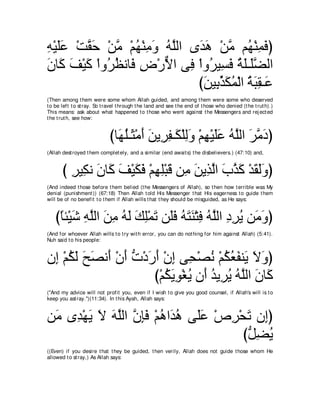 (فَمِنْهُمْ مَّنْ هَدَى اللَّهُ وَمِنْهُمْ مَّنْ حَقَّتْ عَلَيْهِ
الضَّلَـلَةُ فَسِيرُواْ فِى الاٌّرْضِ فَانظُرُواْ كَيْفَ كَانَ
عَـقِبَةُ الْمُكَذِّبِينَ)
(Then among them were some whom Allah guided, and among them were some who deserved to be left to stray. So travel through the land and see the end of those who denied (the truth).) This means: ask about what happened to those who went against the Messengers and rejected the truth, see how:
(دَمَّرَ اللَّهُ عَلَيْهِمْ وَلِلْكَـفِرِينَ أَمْثَـلُهَا)
(Allah destroyed them completely, and a similar (end awaits) the disbelievers.) (47:10) and,
(وَلَقَدْ كَذَّبَ الَّذِينَ مِن قَبْلِهِمْ فَكَيْفَ كَانَ نَكِيرِ )
(And indeed those before them belied (the Messengers of Allah), so then how terrible was My denial (punishment)) (67:18) Then Allah told His Messenger that His eagerness to guide them will be of no benefit to them if Allah wills that they should be misguided, as He says:
(وَمَن يُرِدِ اللَّهُ فِتْنَتَهُ فَلَن تَمْلِكَ لَهُ مِنَ اللَّهِ شَيْئاً)
(And for whoever Allah wills to try with error, you can do nothing for him against Allah) (5:41). Nuh said to his people:
(وَلاَ يَنفَعُكُمْ نُصْحِى إِنْ أَرَدْتُّ أَنْ أَنصَحَ لَكُمْ إِن
كَانَ اللَّهُ يُرِيدُ أَن يُغْوِيَكُمْ)
("And my advice will not profit you, even if I wish to give you good counsel, if Allah's will is to keep you astray.")(11:34). In this Ayah, Allah says:
(إِن تَحْرِصْ عَلَى هُدَاهُمْ فَإِنَّ اللَّهَ لاَ يَهْدِى مَن
يُضِلُّ)
((Even) if you desire that they be guided, then verily, Allah does not guide those whom He allowed to stray.) As Allah says: